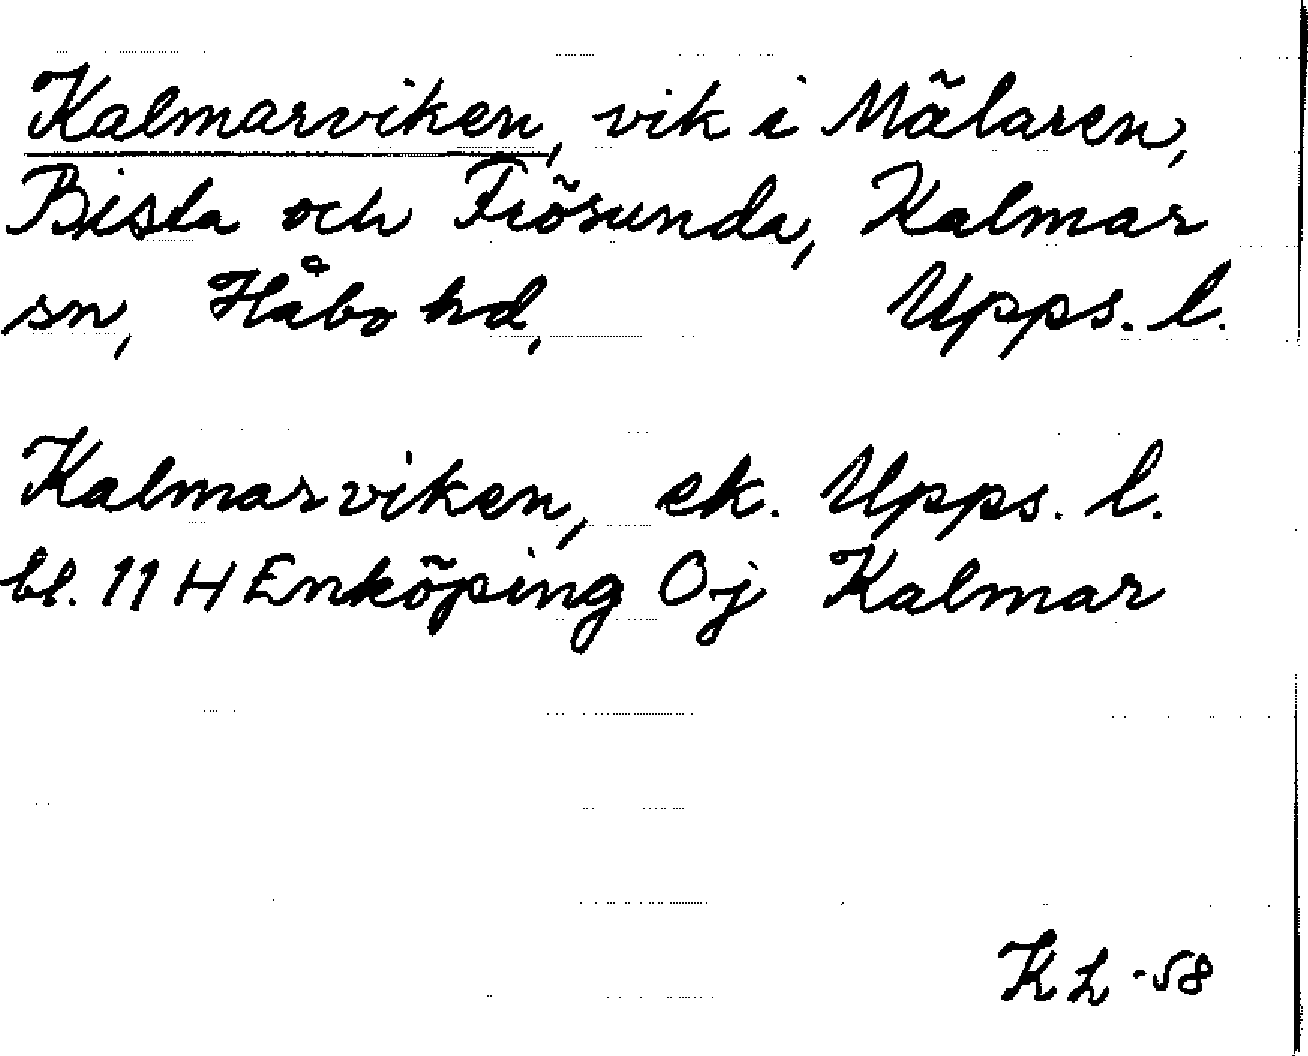 Kalmarviken, vik i Mälaren,
Bista och Frösunda, Kalmar
sn, Håbo hd, Upps. l.
Kalmarviken, ek. Upps. l.
bl. 11 H Enköping Oj Kalmar
KL -58